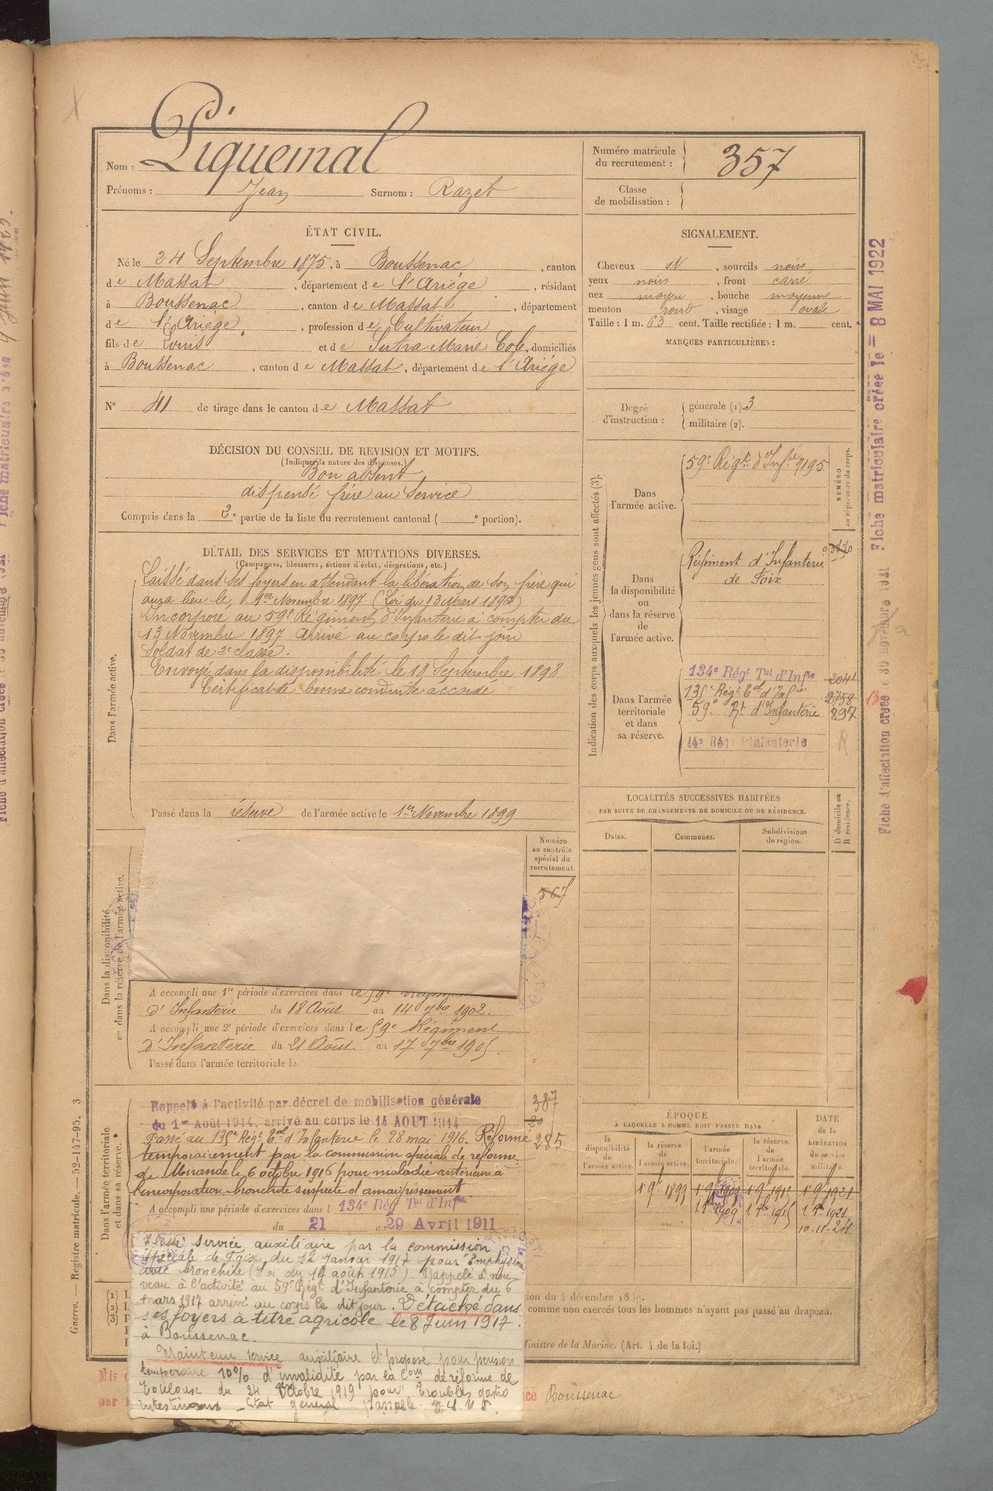 Nom : Piquemal
Prénoms : Jean Surnom : Razet
Numéro matricule du recrutement : 357
Classe de mobilisation :
ÉTAT CIVIL.
Né le 24 Septembre 1875, à Boussenac, canton
de Massat, département de l'Ariège, résidant
à Boussenac, canton de Massat, département
de l'Ariège, profession de Cultivateur
fils de Louis et de Sutra Marie domiciliés
à Boussenac, canton de Massat, département de l'Ariège
N° 41 de tirage dans le canton de Massat
SIGNALEMENT.
Cheveux N, sourcils noirs
yeux noirs, front carré
nez moyen, bouche moyenne
menton rond, visage ovale
Taille : 1 m. 63 cent. Taille rectifiée : 1 m. cent.
MARQUES PARTICULIÈRES :
Degré d'instruction : générale (1). 3
militaire (2).
DÉCISION DU CONSEIL DE REVISION ET MOTIFS.
(Indiquer la nature des dispenses.)
Bon absent
dispensé frère au service
Compris dans la 2e partie de la liste du recrutement cantonal ( e portion).
DÉTAIL DES SERVICES ET MUTATIONS DIVERSES.
(Campagnes, blessures, actions d'éclat, décorations, etc.)
Dans l'armée active.
Laissé dans ses foyers en attendant la libération de son frère qui
aura lieu le 1er Novembre 1897 (Loi du 13 Mars 1896)
Incorporé au 59e Régiment d'Infanterie à compter du
13 Novembre 1897 Arrivé au corps le dit jour
Soldat de 2e classe.
Envoyé dans la disponibilité le 18 Septembre 1898
Certificat de bonne conduite accordé
Passé dans la réserve de l'armée active le 1er Novembre 1899
Indication des corps auxquels les jeunes gens sont affectés (3).
NUMÉRO au répertoire du corps.
Dans l'armée active.
59e Régt d'Infie 7195
Dans la disponibilité ou dans la réserve de l'armée active.
Régiment d'Infanterie
de Foix
Dans l'armée territoriale et dans sa réserve.
134e Régt Tal d'Infie 2041
135e Régt Eal d'Infie 2758
59e Rt d'Infanterie 897
LOCALITÉS SUCCESSIVES HABITÉES
PAR SUITE DE CHANGEMENTS DE DOMICILE OU DE RÉSIDENCE.
Dates. Communes. Subdivisions de région.
D domicile ou R résidence.
Numéro au contrôle spécial du recrutement.
567
Dans la disponibilité ou dans la réserve de l'armée active.
A accompli une 1re période d'exercices dans le 59e
d'Infanterie du 18 Août au 14 7bre 1902.
A accompli une 2e période d'exercices dans le 59e Régiment
d'Infanterie du 21 Août au 17 7bre 1905.
Passé dans l'armée territoriale le
Dans l'armée territoriale et dans sa réserve.
Rappelé à l'activité par décret de mobilisation générale
du 1er Août 1914, arrivé au corps le 14 AOUT 1914
Passé au 135e Régt Eal d'Infanterie le 28 mai 1916. Réformé
temporairement par la commission spéciale de réforme
de Mirande le 6 octobre 1916 pour maladie antérieure à
l'incorporation bronchite suspecte et amaigrissement
A accompli une période d'exercices dans l 134e Régt Tal d'Infie
du 21 au 29 Avril 1911
387
285
Classé service auxiliaire par la commission
spéciale de Foix du 12 Janvier 1917 pour Emphysème
avec bronchite (Loi du 14 août 1913). Rappelé à nou-
veau à l'activité au 59e Régt d'Infanterie à compter du 6
mars 1917 arrivé au corps le dit jour. Détaché dans
ses foyers à titre agricole le 8 Juin 1917.
à Boussenac.
Maintenu service auxiliaire et proposé pour pension
temporaire 10% d'invalidité par la Con de réforme de
Toulouse du 24 Octobre 1919 pour troubles gastro
intestinaux Etat général passable
ÉPOQUE
À LAQUELLE L'HOMME DOIT PASSER DANS
la disponibilité de l'armée active. la réserve de l'armée active. l'armée territoriale. la réserve de l'armée territoriale.
DATE de la LIBÉRATION du service militaire.
1 9bre 1899 1 9bre 1909 1 9bre 1915 1 9bre 1921
10.11.24
comme non exercés tous les hommes n'ayant pas passé au drapeau.
Ministre de la Marine. (Art. 4 de la loi.)
Boussenac
Guerre. — Registre matricule. — 52-147-95. 3
Fiche matriculaire créée le = 8 MAI 1922
Fiche d'affectation créée le 30 novembre 1921